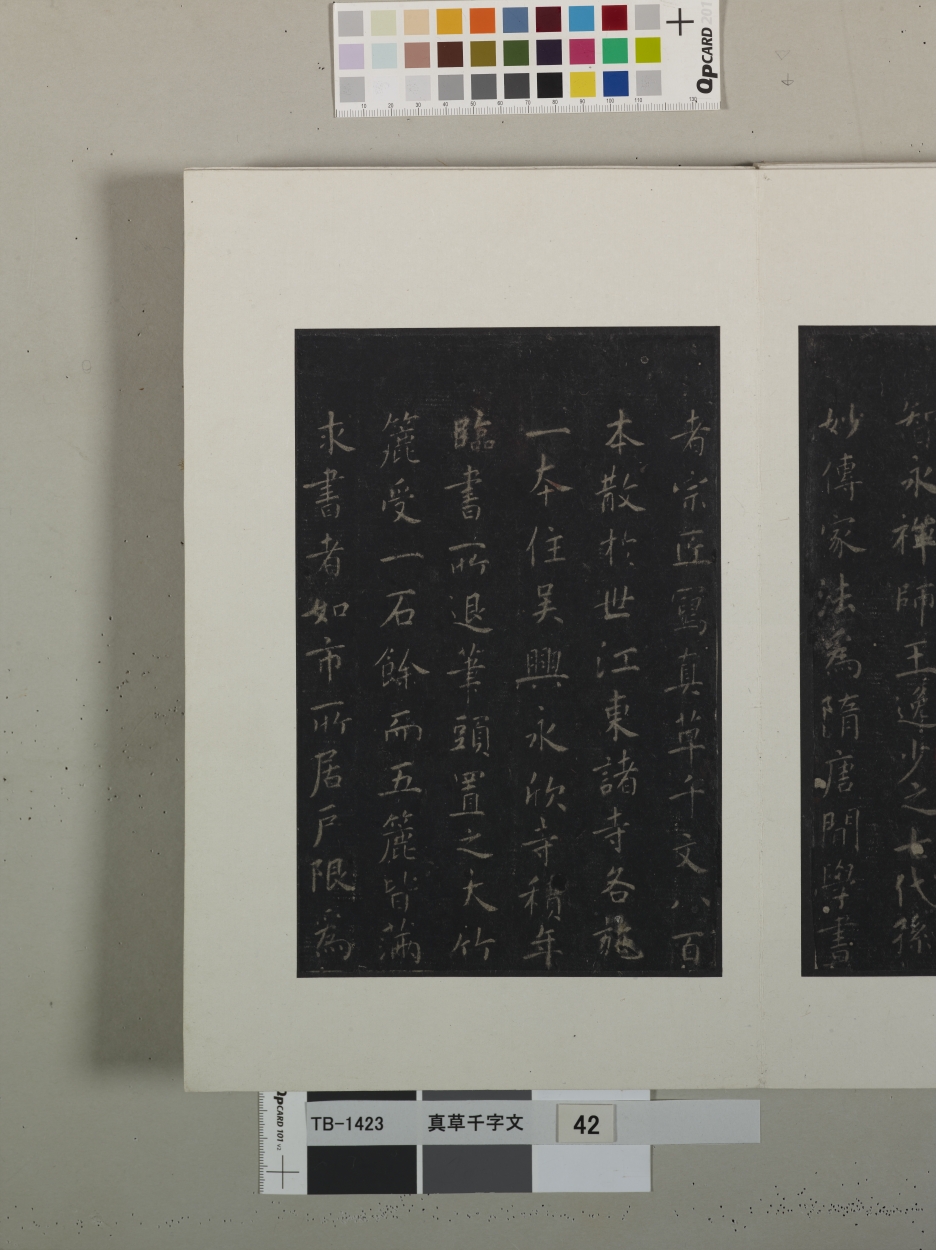 智永禪師王逸少之七代孫
妙傳家法為隋唐間學書
者宗匠寫真草千文八百
本散於世江東諸寺各施
一本住吳興永欣寺積年
臨書所退筆頭置之大竹
簏受一石餘而五簏皆滿
求書者如市所居戶限為
QPCARD 201
10 20 30 40 50 60 70 80 90 100 110 130
QPCARD 101
TB-1423 真草千字文 42